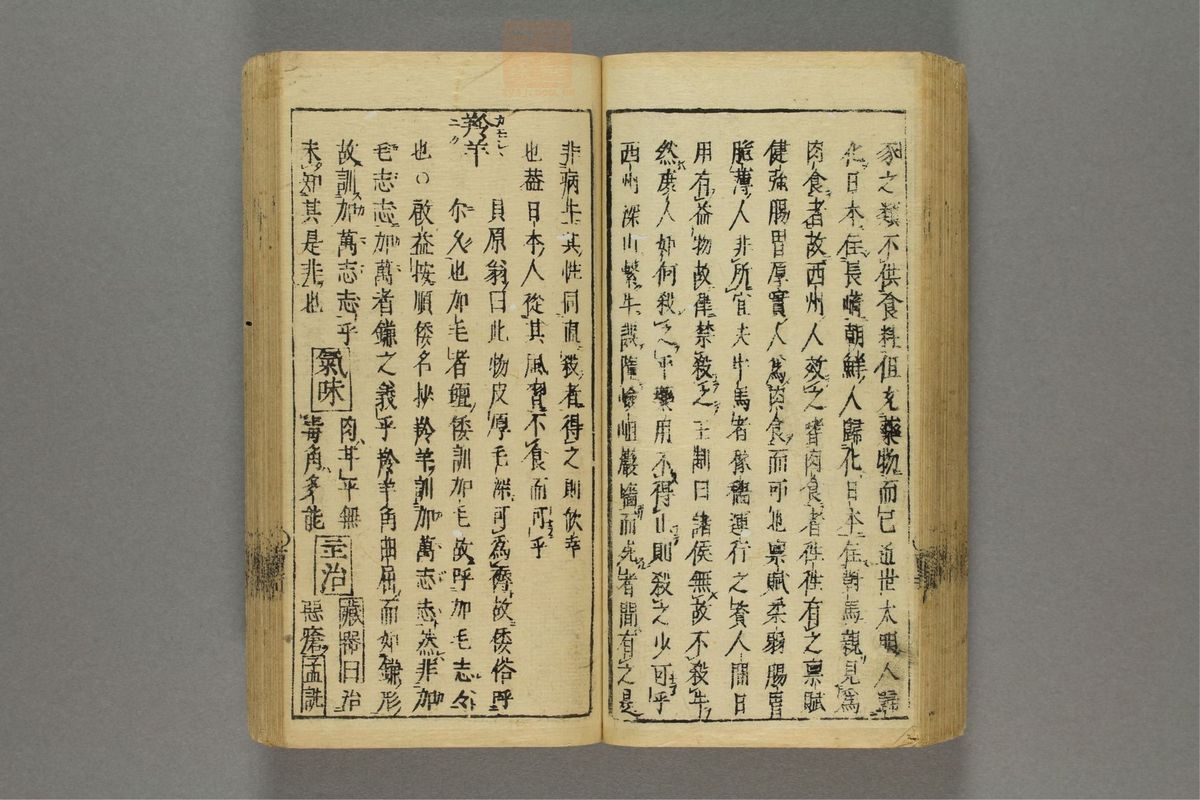 豕之類不供食料但充藥物而已近世太明人歸
化日本在長﨑朝鮮人歸化日本在對馬親見爲
肉食者故西州人效之嗜肉食者徃徃有之禀賦
健強腸胃厚實人爲肉食而可也禀賦柔弱腸胃
脆薄人非所宜夫牛馬者稼穡運行之資人間日
用有益物故律禁殺之王制曰諸侯無故不殺牛
然庶人如何殺之乎藥用不得止則殺之少可乎
西州深山繋牛誤墮嶮岨巖牆而死者間有之是
非病牛其性同直殺者得之則飲幸
也蓋日本人從其風習不食而可乎
羚羊
カモシヽ
ニク
貝原翁曰此物皮厚毛深可爲褥故倭俗呼
尓久也加毛者氊倭訓加毛故呼加毛志々
也○啟益按順倭名抄羚羊訓加萬志志然非加
毛志志加萬者鎌之義乎羚羊角曲屈而如鎌形
故訓加萬志志乎
未知其是非也
氣味
肉甘平無
毒角多能
主治
藏器曰治
惡瘡孟詵